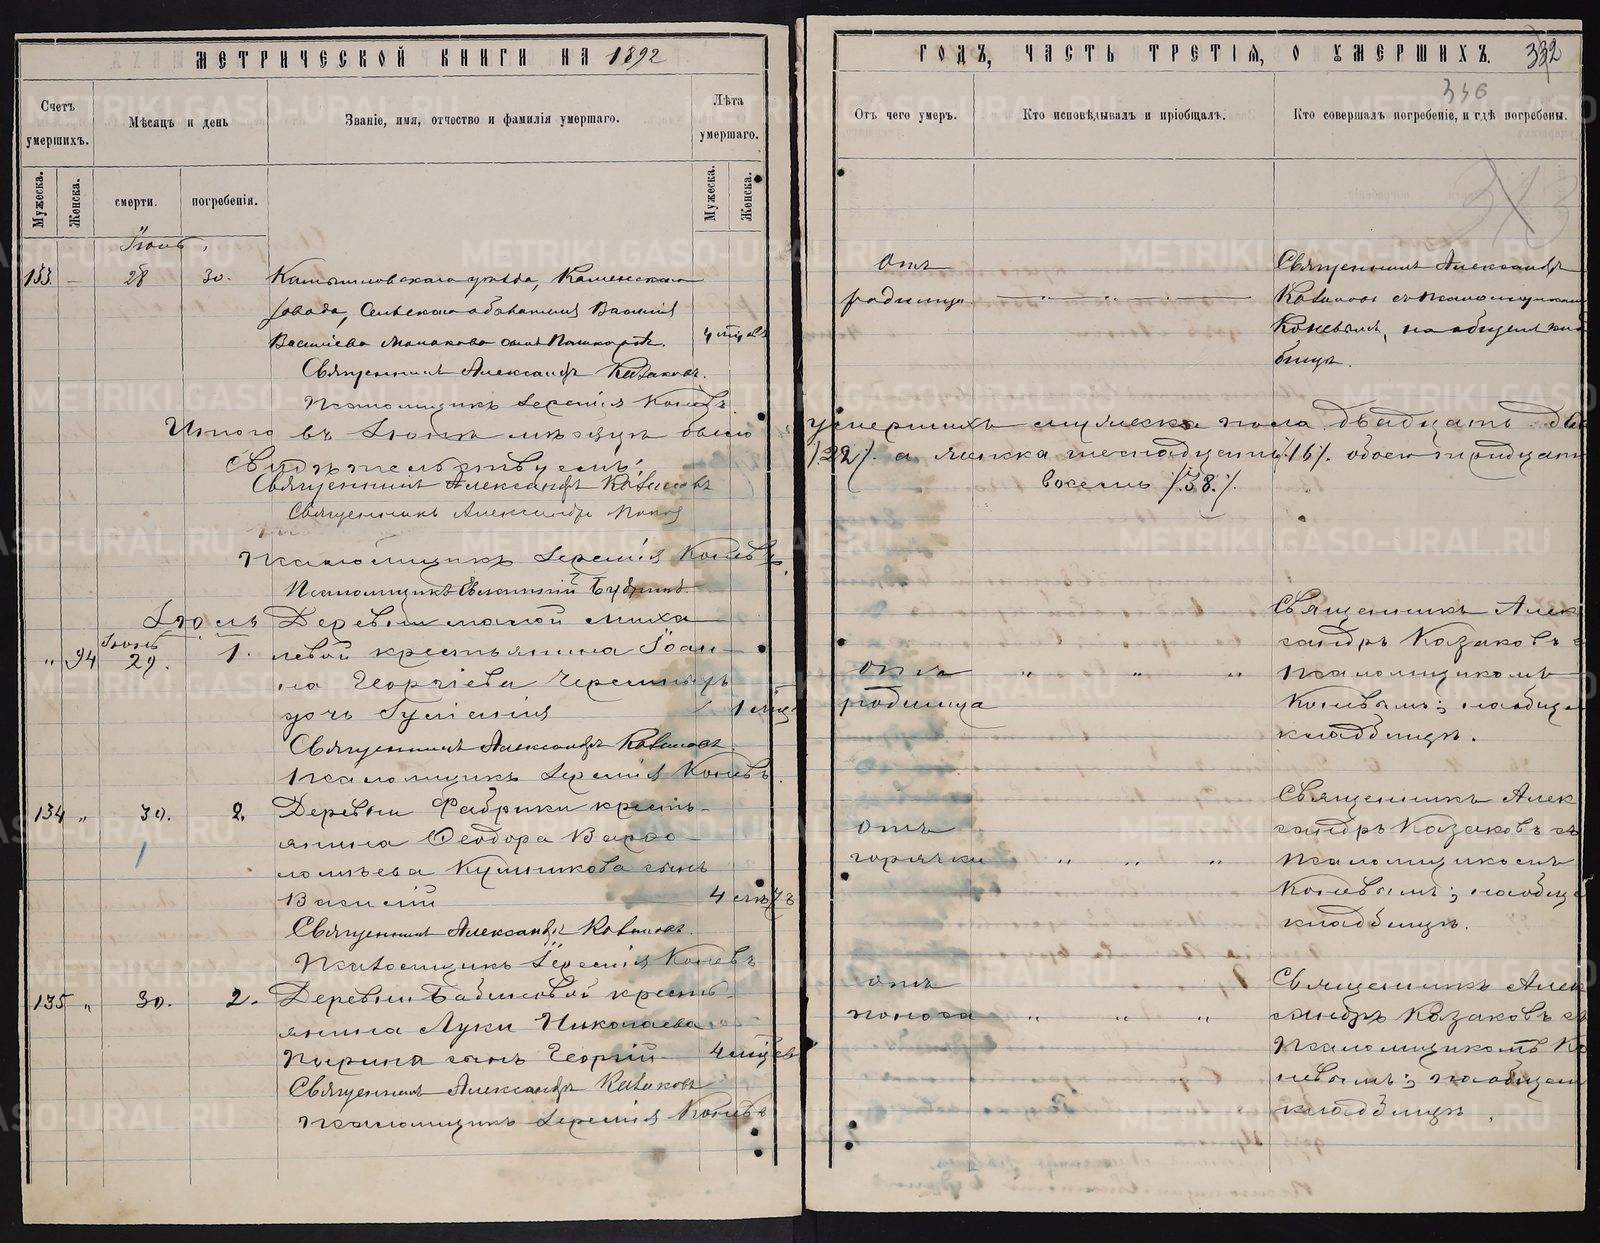 МЕТРИЧЕСКОЙ КНИГИ НА 1892
ГОДЪ, ЧАСТЬ ТРЕТІЯ, О УМЕРШИХЪ. 332
336
Счетъ умершихъ.
Мѣсяцъ и день
Званіе, имя, отчество и фамилія умершаго.
Лѣта умершаго.
Отъ чего умеръ.
Кто исповѣдывалъ и пріобщалъ.
Кто совершалъ погребеніе, и гдѣ погребены.
Мужеска.
Женска.
смерти.
погребенія.
Мужеска.
Женска.
313
Іюнь
133. — 28 30. Камышловскаго уѣзда, Каменскаго
завода, Сельскаго обывателя Василія
Васильева сынъ 4 мѣс
Священникъ Александръ Казаковъ.
Псаломщикъ Іеремія Коневъ.
Отъ
родимца.
Священникъ Александръ
Казаковъ съ псаломщикомъ
Коневымъ, на общемъ клад
бищѣ.
Итого въ Іюнѣ мѣсяцѣ было
умершихъ мужеска пола двадцать два
/22/. а женска шестнадцать /16/. обоего тридцать
восемь /38./.
Свидѣтельствуемъ:
Священникъ Александръ Казаковъ
Священникъ Александръ Попов
Псаломщикъ Іеремія Коневъ.
Псаломщикъ
Іюль
Іюнь
„ 94 29. 1. Деревни малой Миха
левой крестьянина Іоан
на Георгіева
дочь 1 мѣс
Священникъ Александръ Казаковъ.
Псаломщикъ Іеремія Коневъ.
отъ
родимца
Священникъ Алек
сандръ Казаковъ с
псаломщикомъ
Коневымъ; на обще
кладбищѣ.
134 „ 30. 2. Деревни Фабрики кресть-
янина Ѳеодора Варѳо-
ломѣева Куликова сынъ
Василій 4 мѣс
Священникъ Александръ Казаковъ.
Псаломщикъ Іеремія Коневъ
отъ
горячки
Священникъ Алек
сандръ Казаковъ съ
псаломщикомъ
Коневымъ; на обще
кладбищѣ.
135 „ 30. 2. Деревни Бабиновой кресть-
янина Луки Николаева
сынъ Георгій 4 мѣсяцевъ
Священникъ Александръ Казаковъ
Псаломщикъ Іеремія Коневъ
отъ
поноса
Священникъ Алек
сандръ Казаковъ съ
псаломщикомъ Ко
невымъ; на общем
кладбищѣ.
METRIKI.GASO-URAL.RU